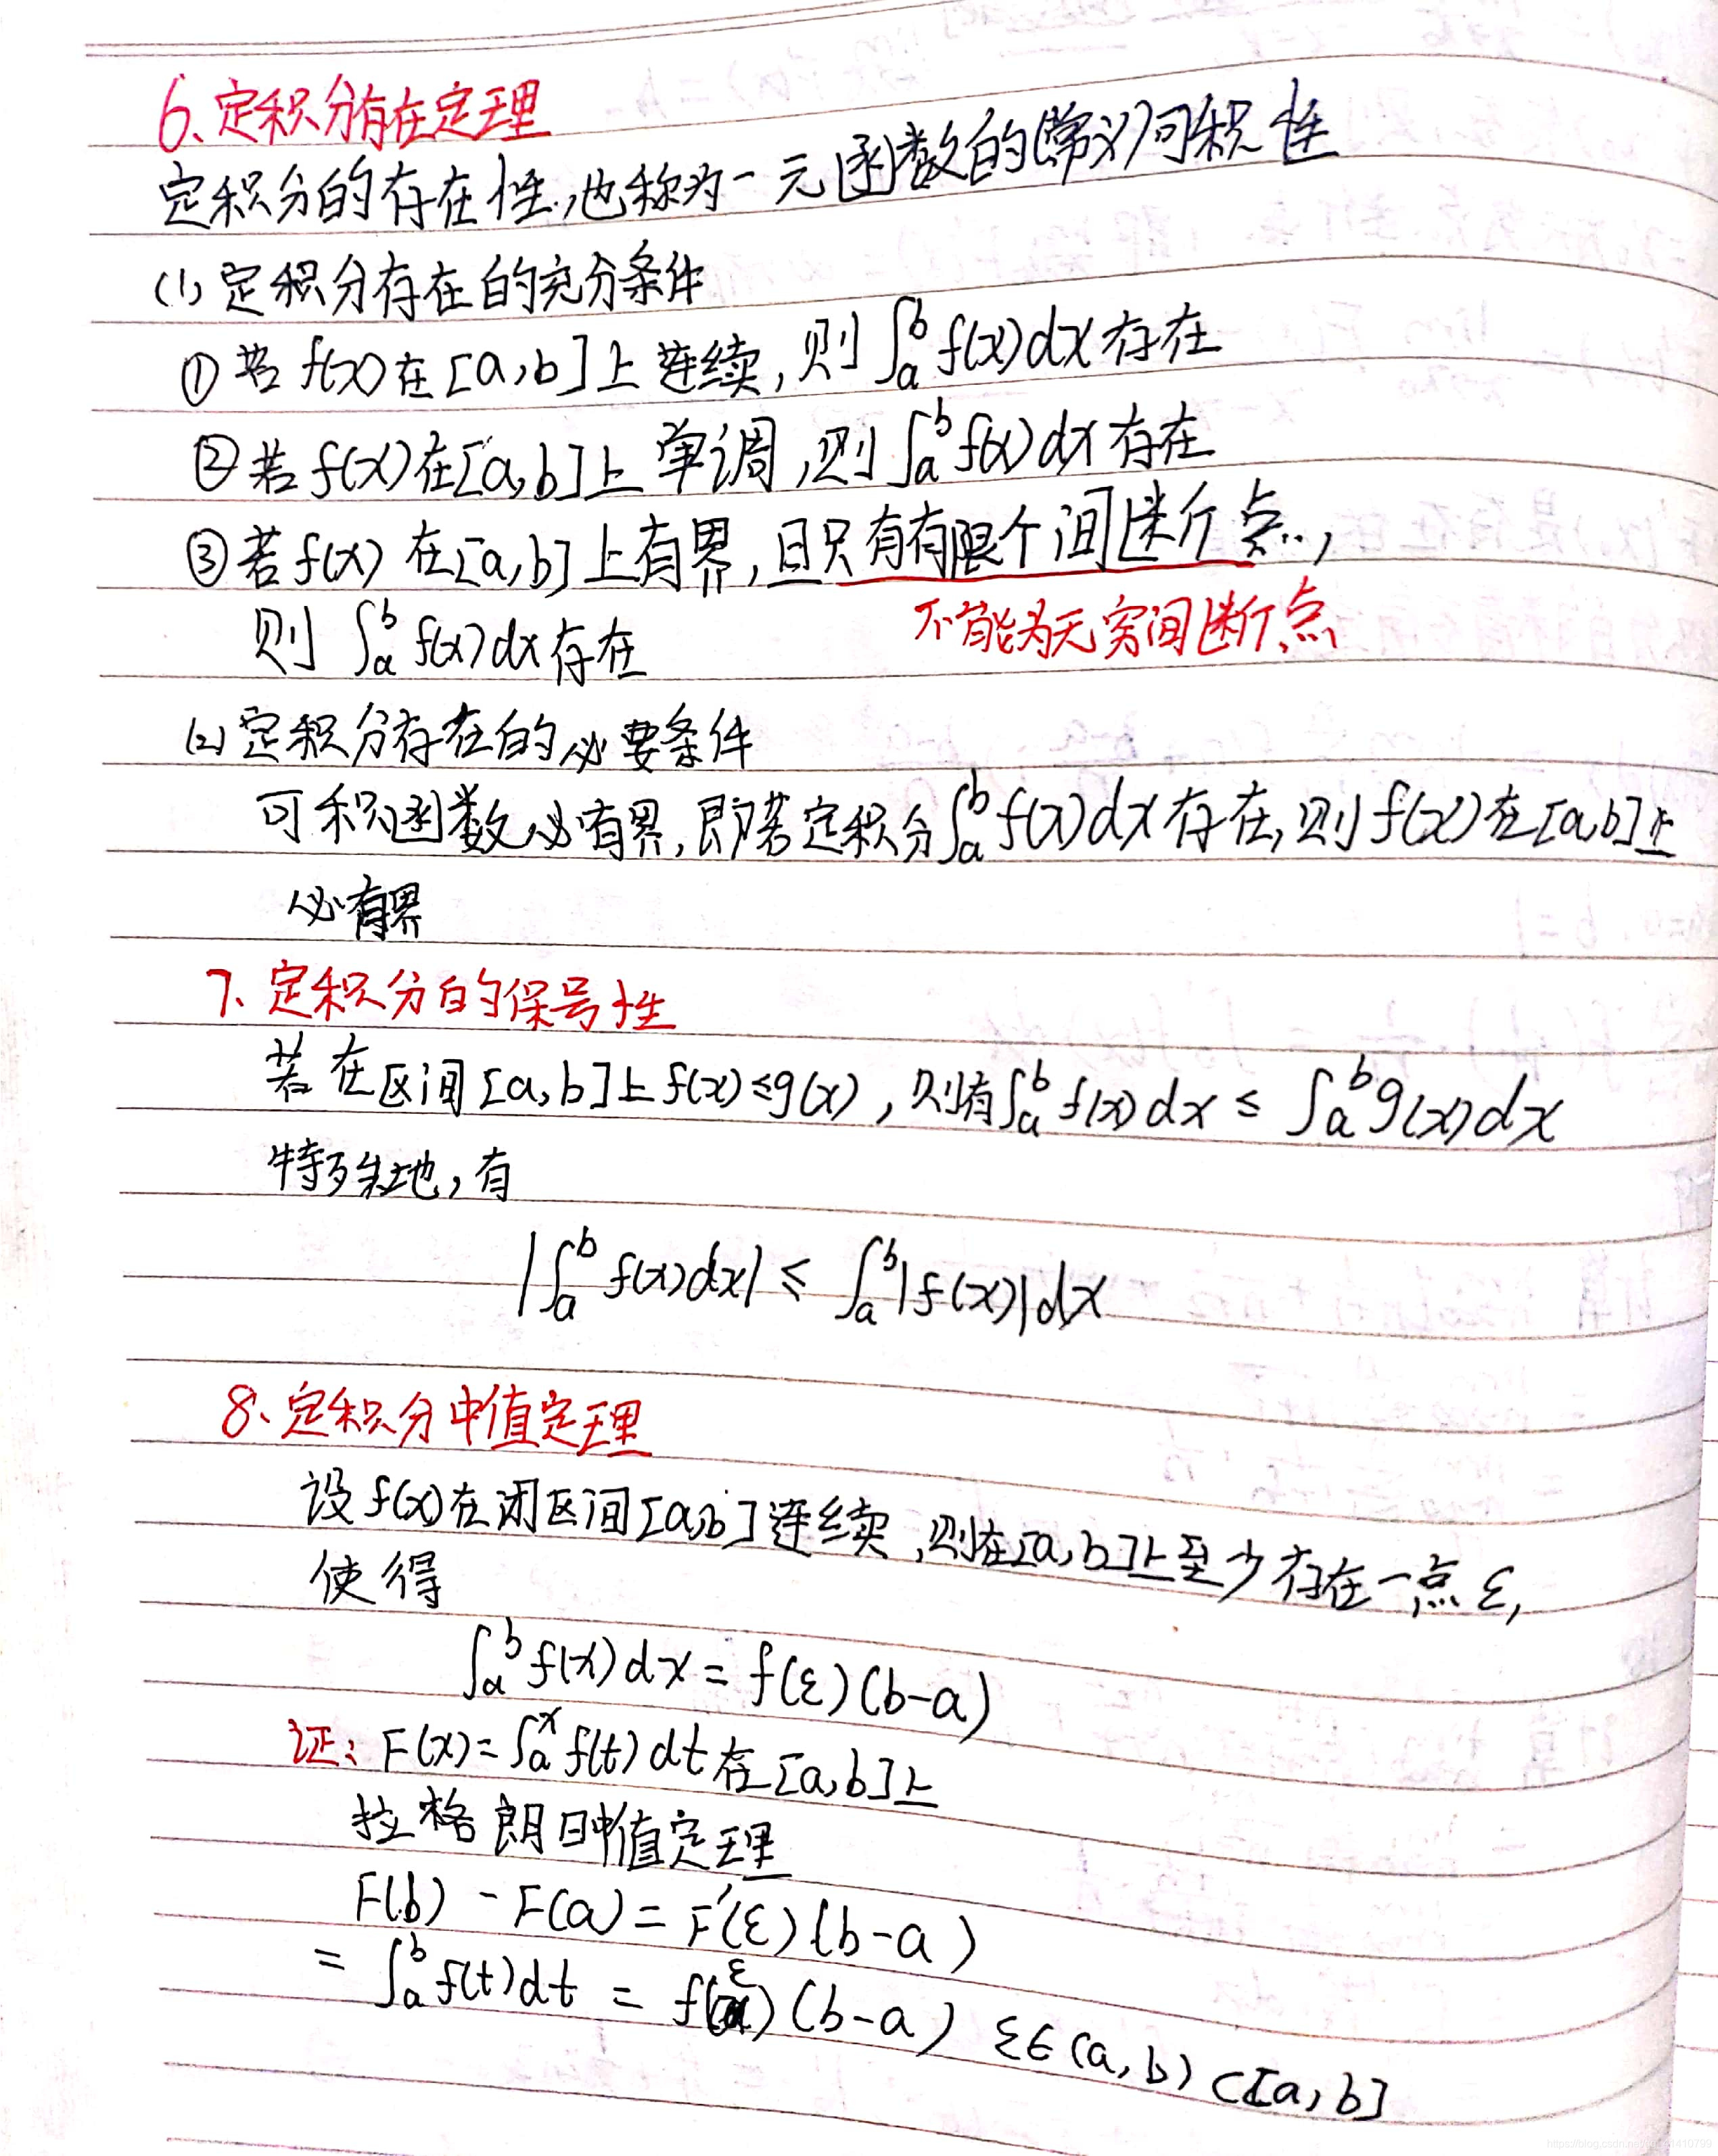 6、定积分存在定理
定积分的存在性,也称为一元函数的(常义)可积性
(1)定积分存在的充分条件
①若f(x)在[a,b]上连续,则∫ₐᵇf(x)dx存在
②若f(x)在[a,b]上单调,则∫ₐᵇf(x)dx存在
③若f(x)在[a,b]上有界,且只有有限个间断点,
则∫ₐᵇf(x)dx存在 不能为无穷间断点
(2)定积分存在的必要条件
可积函数必有界,即若定积分∫ₐᵇf(x)dx存在,则f(x)在[a,b]上
必有界
7、定积分的保号性
若在区间[a,b]上f(x)≤g(x),则有∫ₐᵇf(x)dx≤∫ₐᵇg(x)dx
特殊地,有
|∫ₐᵇf(x)dx|≤∫ₐᵇ|f(x)|dx
8、定积分中值定理
设f(x)在闭区间[a,b]连续,则在[a,b]上至少存在一点ε,
使得
∫ₐᵇf(x)dx=f(ε)(b-a)
证:F(x)=∫ₐˣf(t)dt在[a,b]上
拉格朗日中值定理
F(b)-F(a)=F'(ε)(b-a)
=∫ₐᵇf(t)dt=f(ε)(b-a) ε∈(a,b)⊂[a,b]